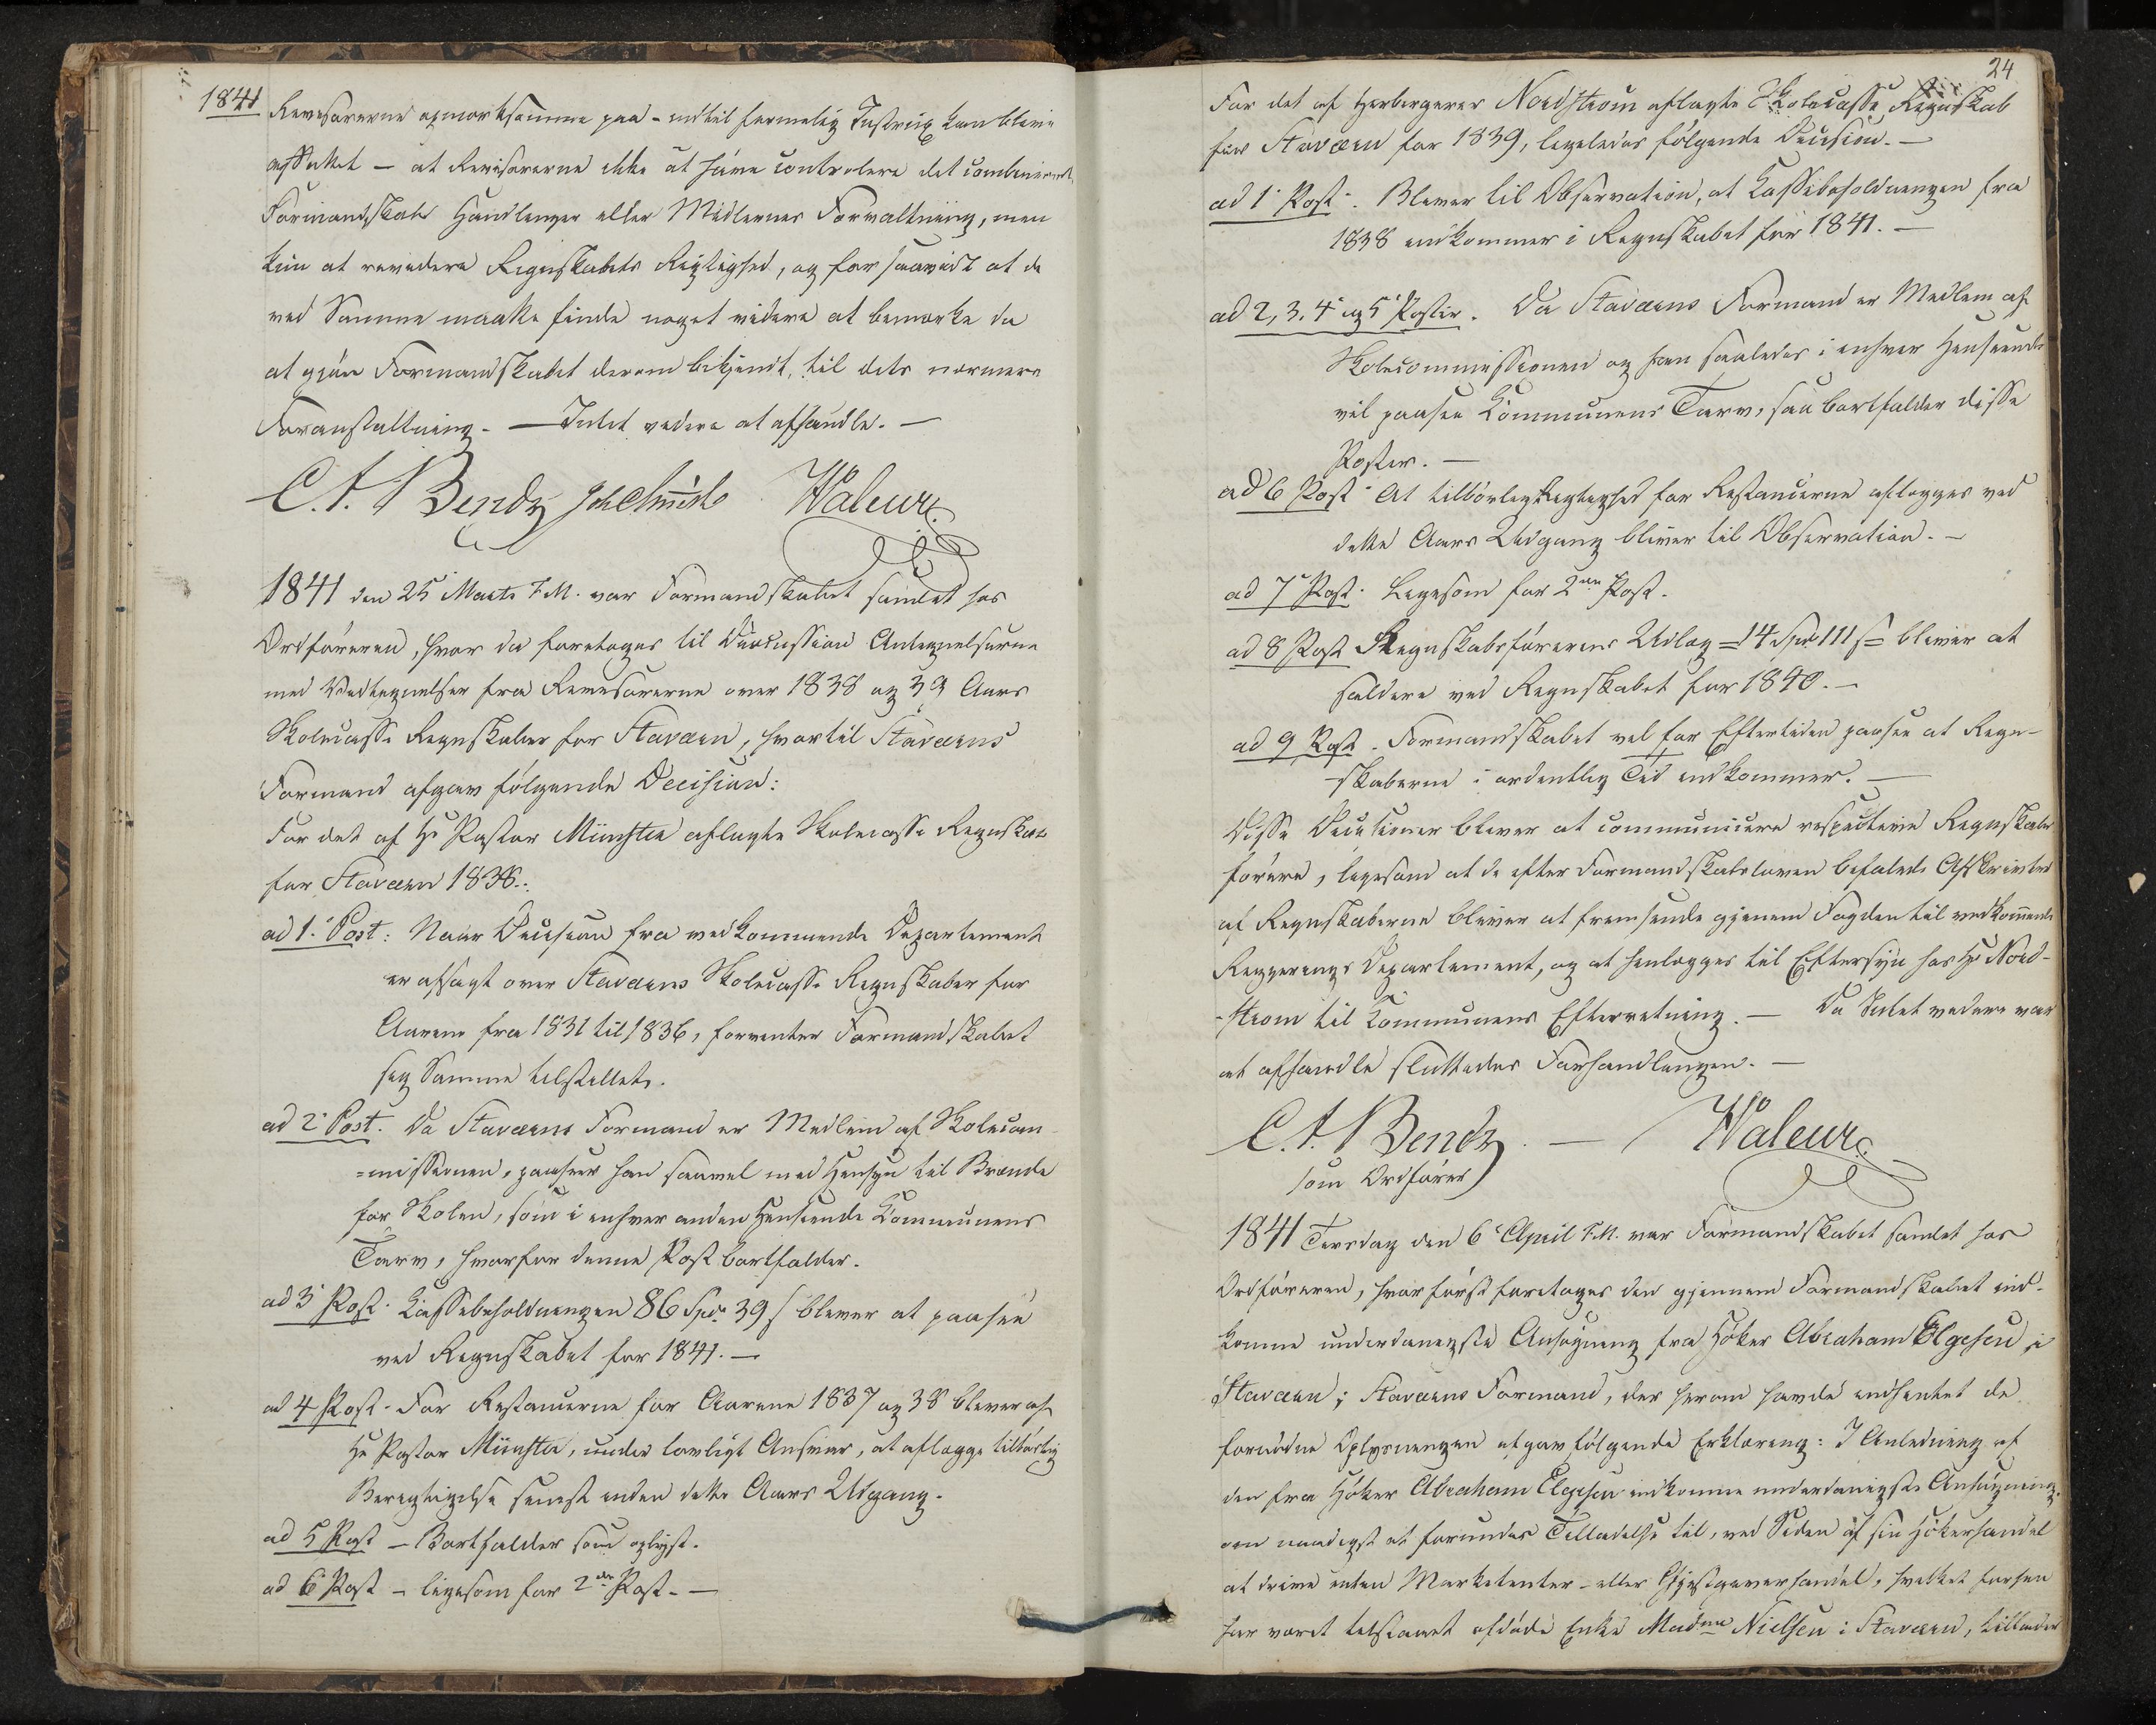 1841
Revisorerne opmærksomme paa – indtil formelig Instrux kan blive
affattet – at Revisorerne ikke at have controlere det combinerede
Formandskabs Handlinger eller Midlernes Forvaltning, men
kun at revidere Regnskabets Rigtighed, og for saavidt at de
ved Samme maatte finde noget videre at bemærke da
at gjøre Formandskabet derom bekjendt, til dets nærmere
Foranstaltning. — Intet videre at afhandle. —
C. A. Bendz Waleur
1841 den 25 Marts F.M. var Formandskabet samlet hos
Ordføreren, hvor da foretoges til Discussion Antegnelserne
med Vedtegnelser fra Revisorerne over 1838 og 39 Aars
Skolecasse Regnskaber for Staværn, hvortil Staværns
Formand afgav følgende Decision:
For det af Hr Pastor Münster aflagte Skolecasse Regnskab
for Staværn 1838.
ad 1. Post: Naar Decision fra vedkommende Departement
er afsagt over Staværns Skolecasse Regnskaber for
Aarene fra 1831 til 1836, forventer Formandskabet
sig Samme tilstillet.
ad 2 Post. Da Staværns Formand er Medlem af Skolecom-
=missionen, paaseer han saavel med Hensyn til Brænde
for Skolen, som i enhver anden Henseende Communens
Tarv, hvorfor denne Post bortfalder.
ad 3 Post. Cassebeholdningen 86 Spd. 39 s bliver at paasee
ved Regnskabet for 1841. —
ad 4 Post. For Restancerne for Aarene 1837 og 38 bliver af
Hr Pastor Münster, under lovligt Ansvar, at aflægge tilbørlig
Berigtigelse senest inden dette Aars Udgang.
ad 5 Post – Bortfalder som oplyst.
ad 6 Post – ligesom for 2den Post. —
24
For det af Herbergerer Nordstrøm aflagte Skolecasse Regnskab
for Staværn for 1839, ligeledes følgende Decision. —
ad 1 Post. Bliver til Observation, at Cassebeholdningen fra
1838 indkommer i Regnskabet for 1841. —
ad 2, 3, 4 og 5 Poster. Da Staværns Formand er Medlem af
Skolecommissionen og han saaledes i enhver Henseende
vil paasee Communens Tarv, saa bortfalder disse
Poster. —
ad 6 Post At tilbørlig Rigtighed for Restancerne aflægges ved
dette Aars Udgang bliver til Observation. —
ad 7 Post. Ligesom for 2den Post.
ad 8 Post Regnskabsførerens Udlæg = 14 Spd 111 s = bliver at
saldere ved Regnskabet for 1840. —
ad 9 Post. Formandskabet vil for Eftertiden paasee at Regn-
skaberne i ordentlig Tid indkommer. —
Disse Decisioner bliver at communicere respective Regnskabs
førere, ligesom at de efter Formandskabsloven befalede Afskrivter
af Regnskaberne bliver at fremsende gjenem Fogden til vedkommende
Regjerings Departement, og at henlægges til Eftersyn hos Hr Nord-
-strøm til Communens Efterretning. — Da Intet videre var
at afhandle sluttedes Forhandlingen. —
C. A. Bendz. — Waleur
som Ordfører
1841 Tirsdag den 6 April F.M. var Formandskabet samlet hos
Ordføreren, hvor først foretoges den gjennem Formandskabet ind-
komne underdanigste Ansøgning fra Høker Abraham Elgesen i
Staværn; Staværns Formand, der herom havde indhentet de
fornødne Oplysninger afgav følgende Erklæring: I Anledning af
den fra Høker Abraham Elgesen indkomne underdanigste Ansøgning
om naadigst at forundes Tilladelse til, ved Siden af sin Høkerhandel
at drive enten Marketenter- eller Gjestgiverhandel, hvilket forhen
har været tilstaaet afdøde Enke Madme Nielsen i Staværn, tillader